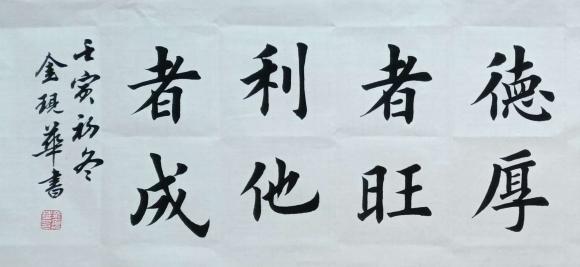 德厚
者旺
利他
者成
壬寅初冬
金現華書